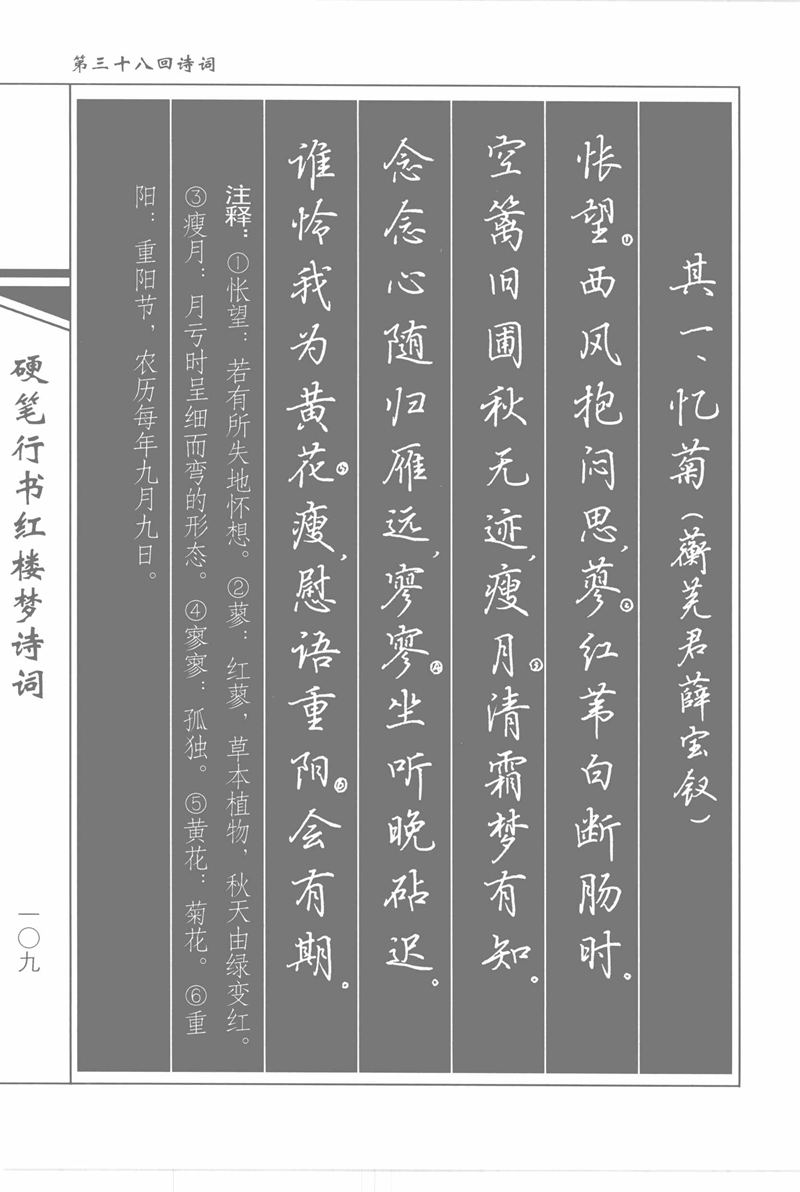 第三十八回诗词
其一、忆菊(蘅芜君薛宝钗)
怅望①西风抱闷思,蓼②红苇白断肠时。
空篱旧圃秋无迹,瘦月③清霜梦有知。
念念心随归雁远,寥寥④坐听晚砧迟。
谁怜我为黄花⑤瘦,慰语重阳⑥会有期。
注释:①怅望:若有所失地怀想。②蓼:红蓼,草本植物,秋天由绿变红。
③瘦月:月亏时呈细而弯的形态。④寥寥:孤独。⑤黄花:菊花。⑥重
阳:重阳节,农历每年九月九日。
硬笔行书红楼梦诗词
一〇九